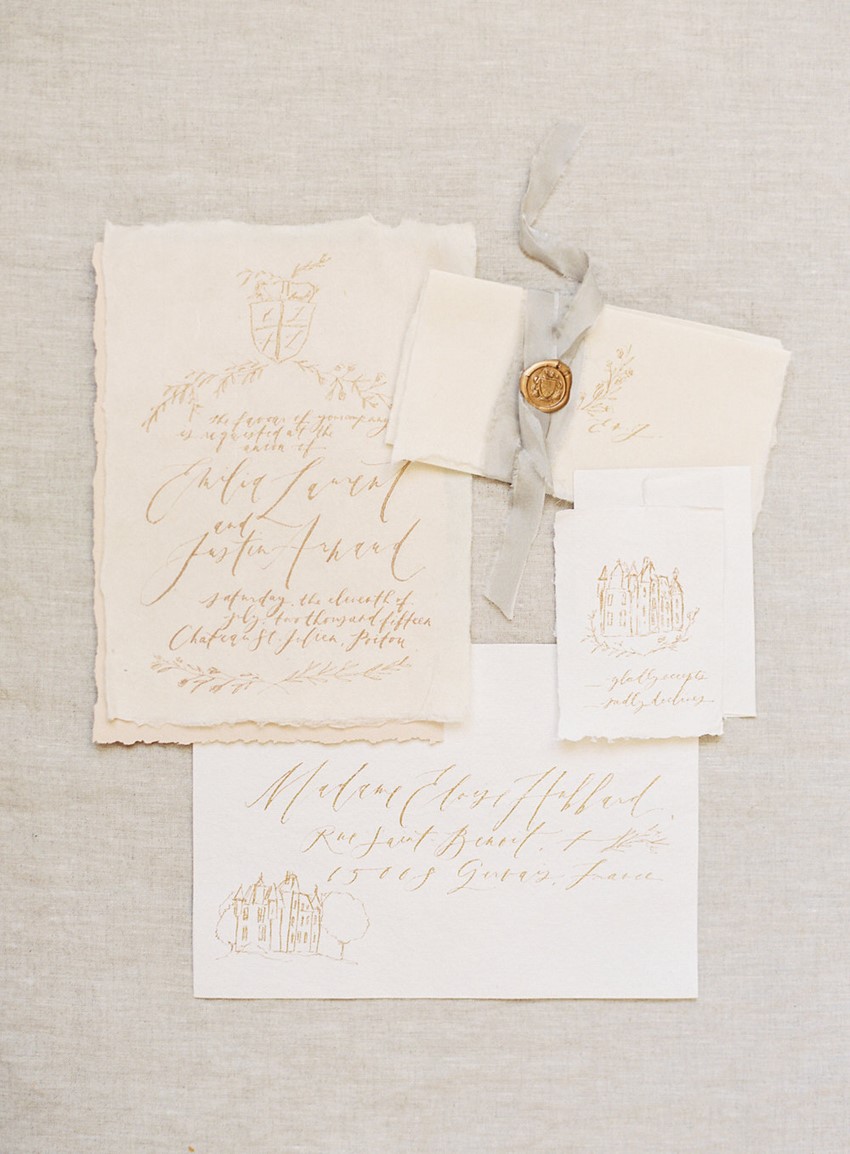 the favour of your company
is requested at the
union of
Emilia Laurent
and
Justin Arnaud
saturday, the eleventh of
july, two thousand fifteen
Chateau St. Julien, Poitou
E & J
gladly accepts
sadly declines
Madame Eloise Hubbard
Rue Saint Benoit,
France